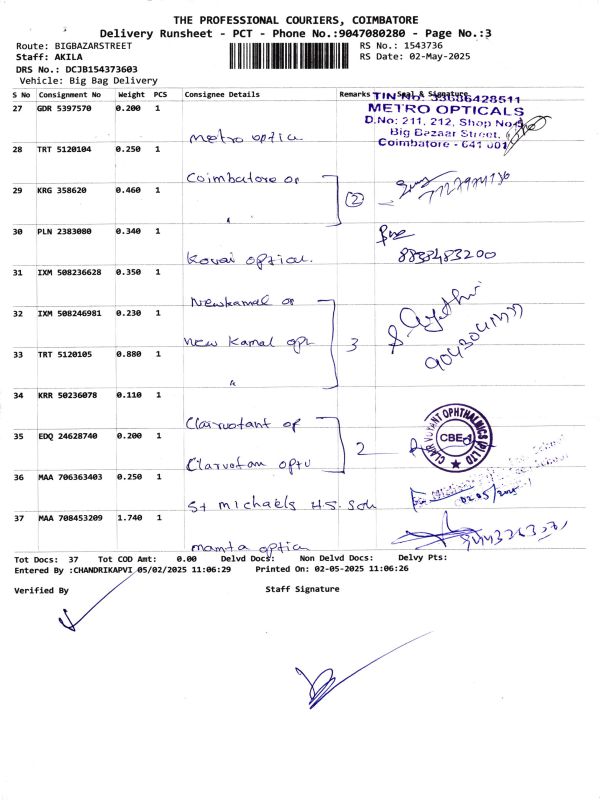 THE PROFESSIONAL COURIERS, COIMBATORE
Delivery Runsheet - PCT - Phone No.:9047080280 - Page No.:3
Route: BIGBAZARSTREET
RS No.: 1543736
Staff: AKILA
RS Date: 02-May-2025
DRS No.: DCJB154373603
Vehicle: Big Bag Delivery
S No Consignment No Weight PCS Consignee Details Remarks Seal & Signature
TIN No. 33686428511
METRO OPTICALS
D.No: 211, 212, Shop No.
Big Bazaar Street,
Coimbatore - 641 001
27 GDR 5397570 0.200 1
metro optica
28 TRT 5120104 0.250 1
Coimbatore op
29 KRG 358620 0.460 1
"
2
30 PLN 2383080 0.340 1
Kovai optical.
8838483200
31 IXM 508236628 0.350 1
Newkamal op
32 IXM 508246981 0.230 1
New Kamal opt
3
33 TRT 5120105 0.880 1
"
34 KRR 50236078 0.110 1
Clairvotant op
35 EDQ 24628740 0.200 1
Clarvotam optu
2
CLAIR VOYANT OPHTHALMICS (P) LTD
CBE-1
36 MAA 706363403 0.250 1
St michaels H.S. Soh
02.05/2025
37 MAA 708453209 1.740 1
mamta optica
Tot Docs: 37 Tot COD Amt: 0.00 Delvd Docs: Non Delvd Docs: Delvy Pts:
Entered By :CHANDRIKAPVI 05/02/2025 11:06:29 Printed On: 02-05-2025 11:06:26
Verified By
Staff Signature